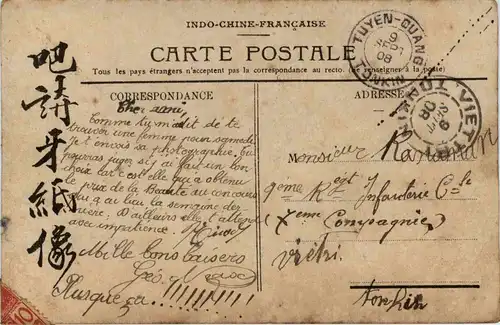 INDO-CHINE-FRANÇAISE
CARTE POSTALE
Tous les pays étrangers n'acceptent pas la correspondance au recto. (Se renseigner à la poste)
TUYEN-QUANG
9
SEPT
08
TONKIN
CORRESPONDANCE
ADRESSE
VIETRI
9
SEPT
08
TONKIN
吧請牙紙像
Cher ami,
Comme tu m'as dit de te
trouver une femme pour samedi
je t'envois sa photographie. Tu
pourras juger si j'ai fait un bon
choix car c'est elle qui a obtenu
le prix de la Beauté au concours
qui a eu lieu la semaine
D'ailleurs elle t'attend
avec impatience.
Mille bons baisers
Géo
Plusque ça !!!!!!!!!
Monsieur
9ème Regt d'Infanterie Cle
(Xème Compagnie)
Viétri
Tonkin
10